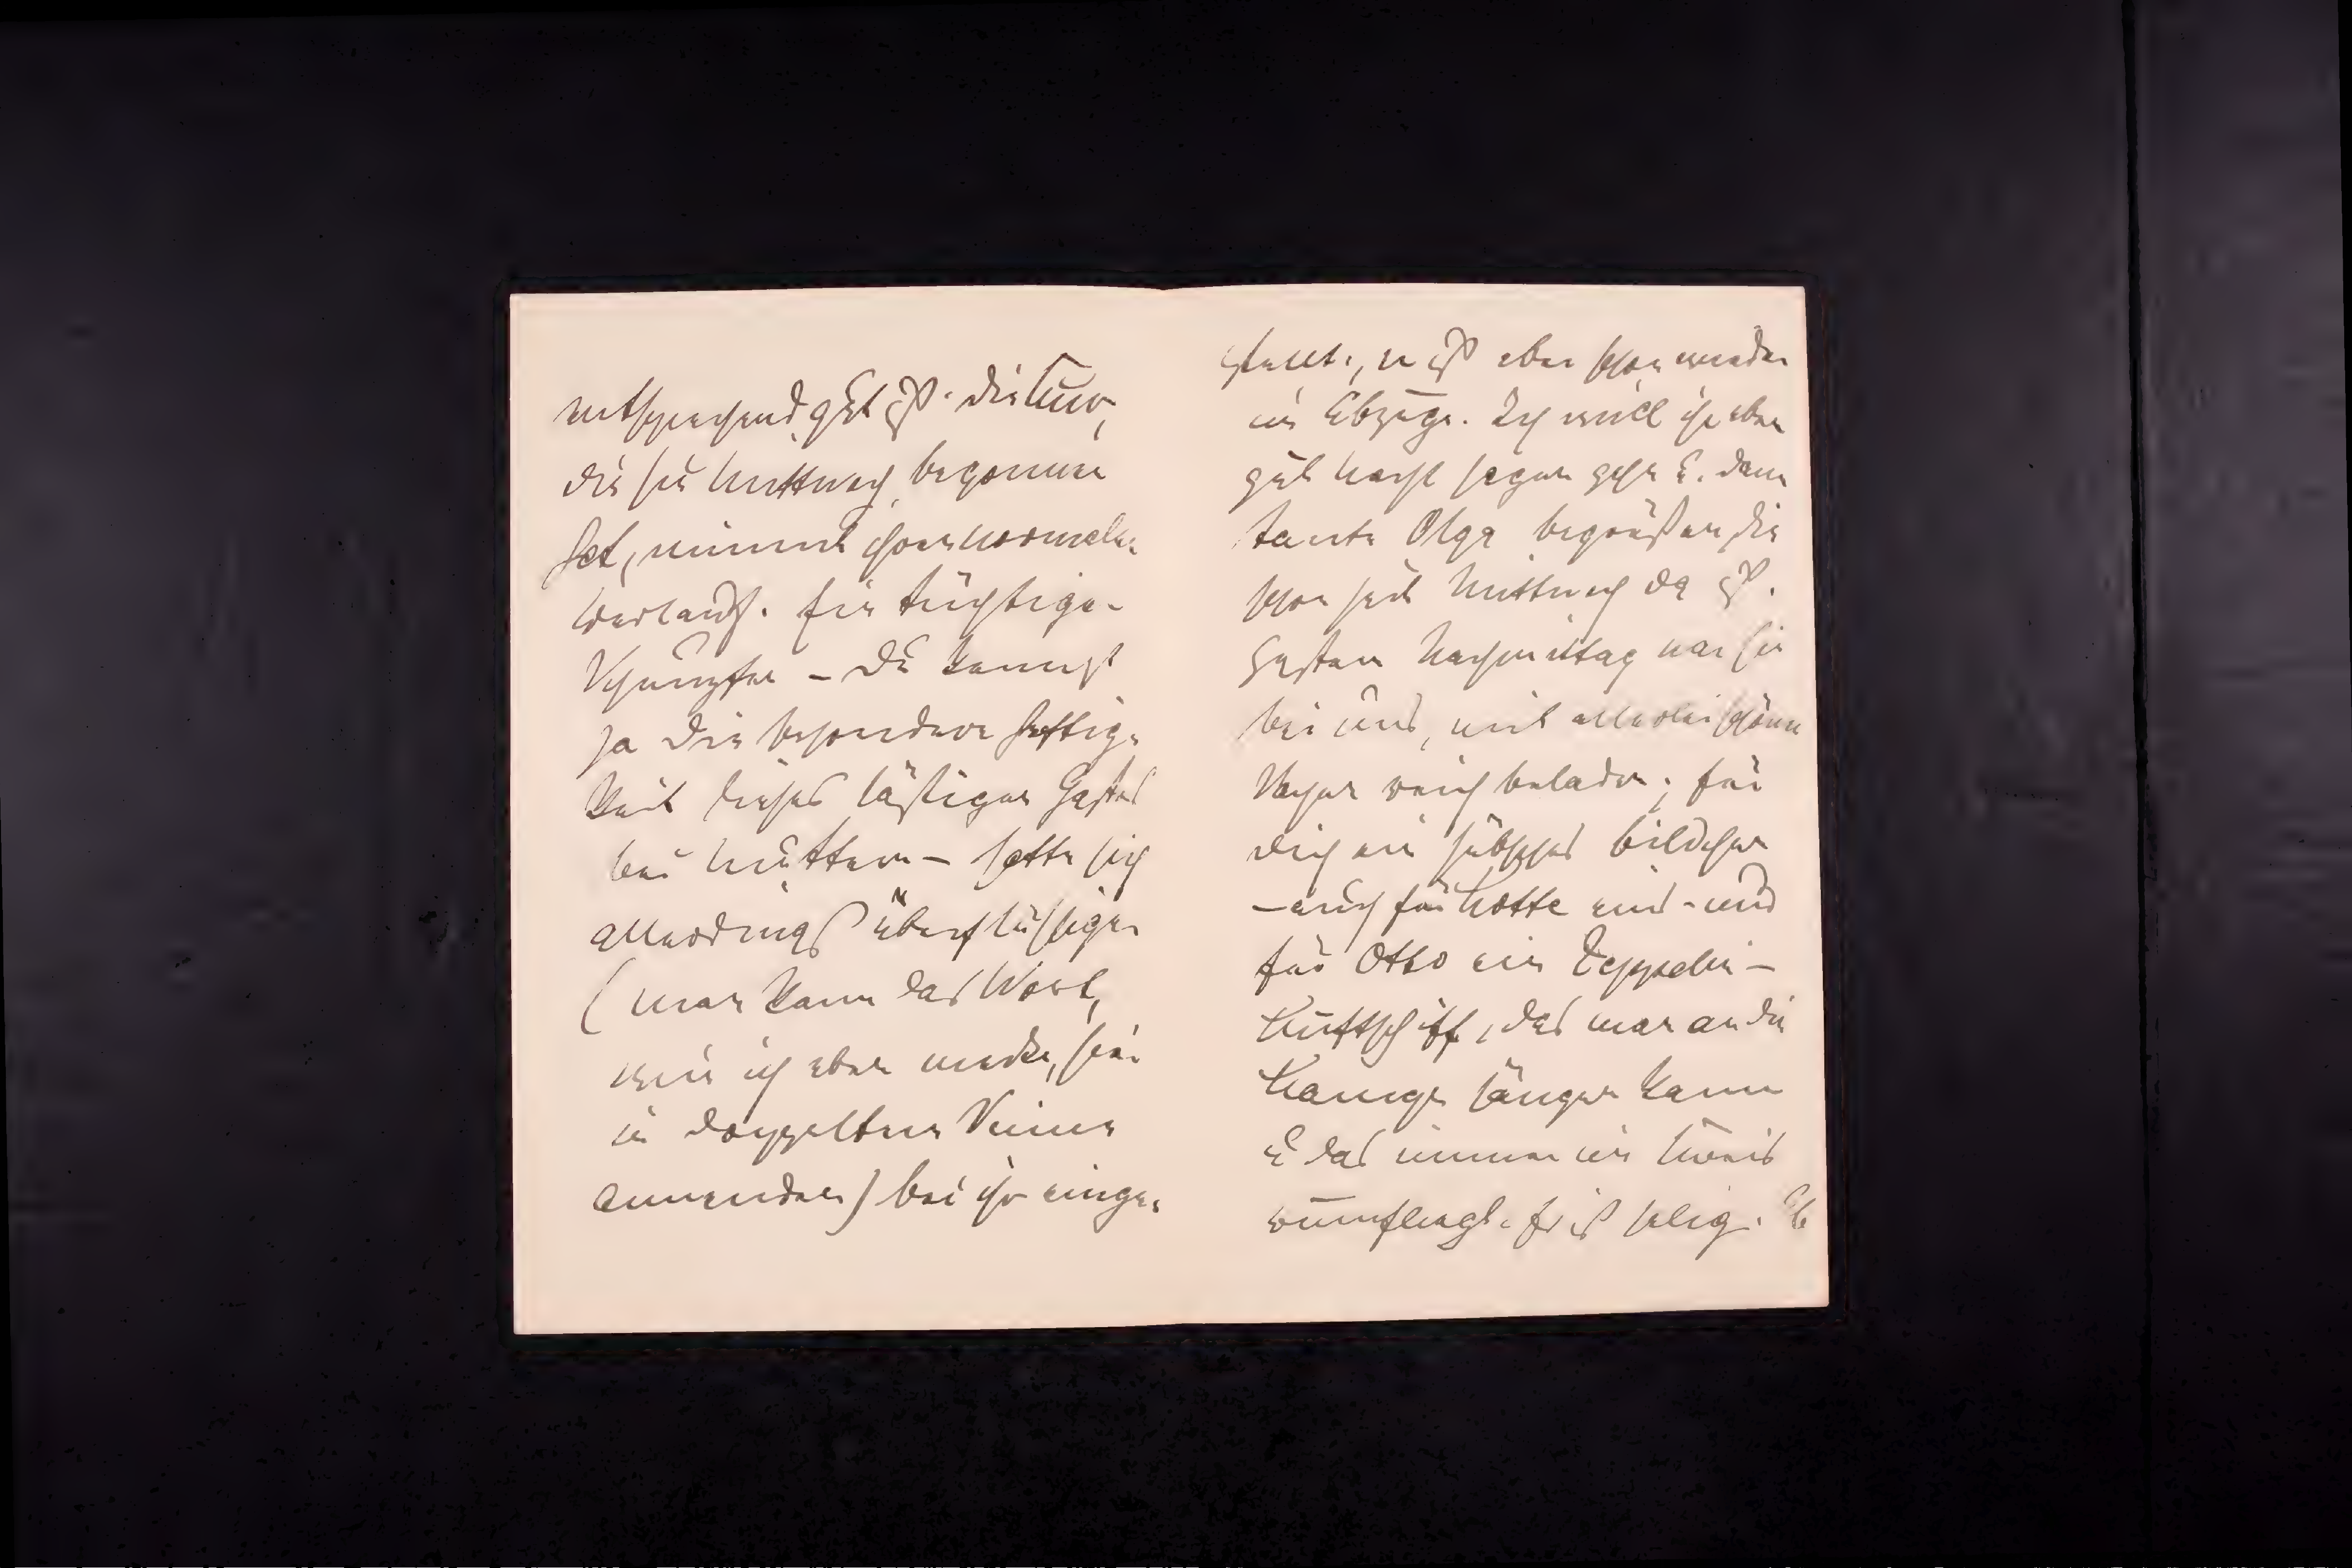 entsprechend gut ist. Die Kur,
die sie Mittwoch begonnen
hat, nimmt ihren normalen
Verlauf. Ein tüchtiger
Schnupfen – Du kennst
ja die besondere Heftig-
keit dieses lästigen Gastes
bei Muttern – hatte sich
allerdings überflüssiger
(man kann das Wort,
wie ich eben merke, hier
in doppeltem Sinne
anwenden) bei ihr einge-
stellt, er ist aber schon wieder
im Abzuge. Ich will ihr eben
gut Nacht sagen gehn u. dann
Tante Olga begrüßen, die
schon seit Mittwoch da ist.
Gestern Nachmittag war sie
bei uns, mit allerlei schönen
Sachen reich beladen; für
Dich ein hübsches Bildchen
– auch für Lotte eins – und
für Otto ein Zeppelin-
Luftschiff, das man an die
Lampe hängen kann
u das immer im Kreis
rumfliegt. Er ist selig. Ob